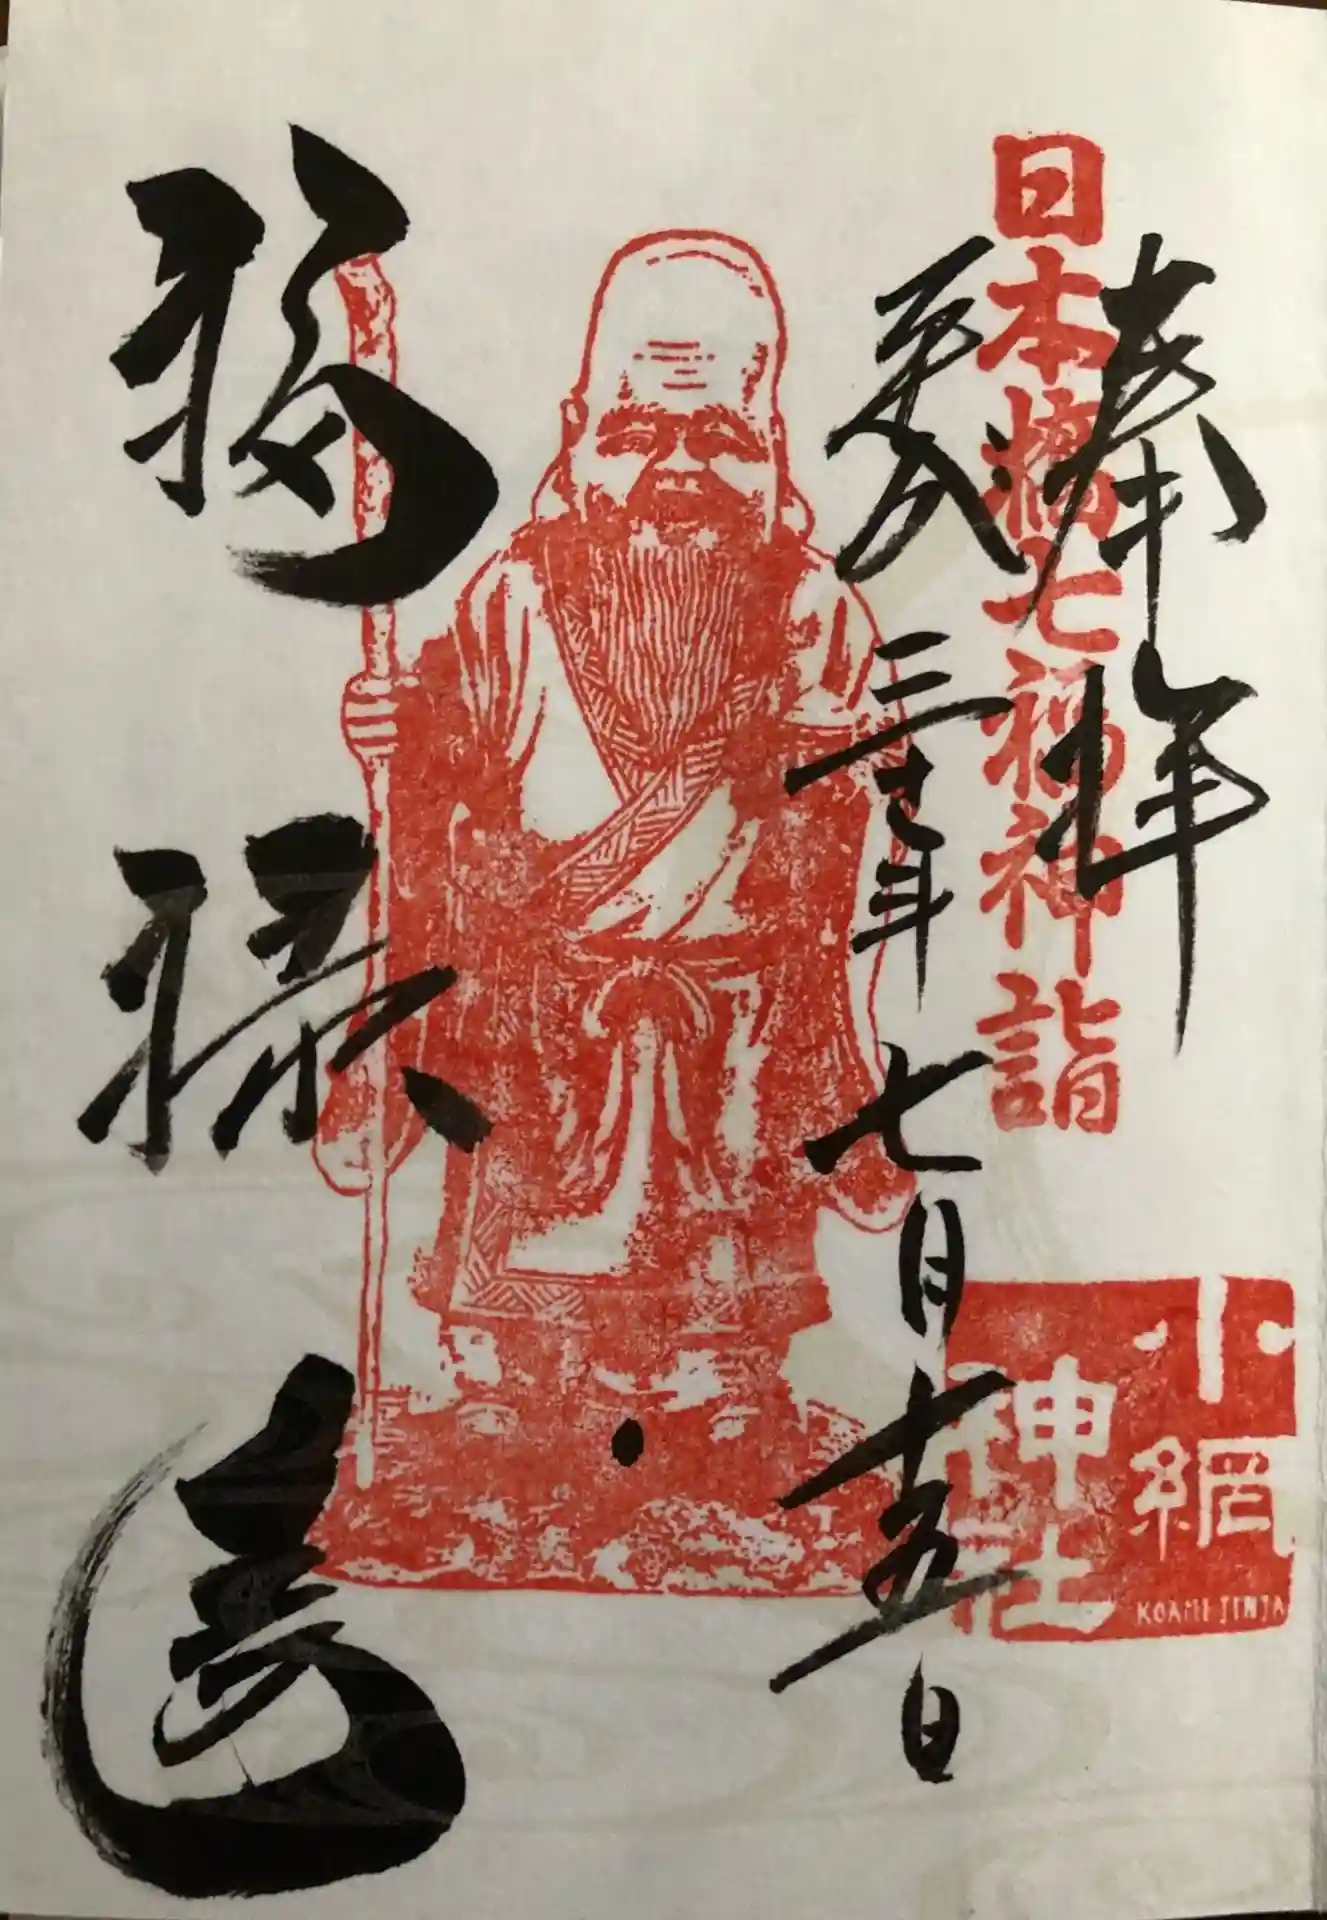 奉拝
日本橋七福神詣
小網
神社
KOAMI JINJA
平成三十年七月十五日
福禄寿